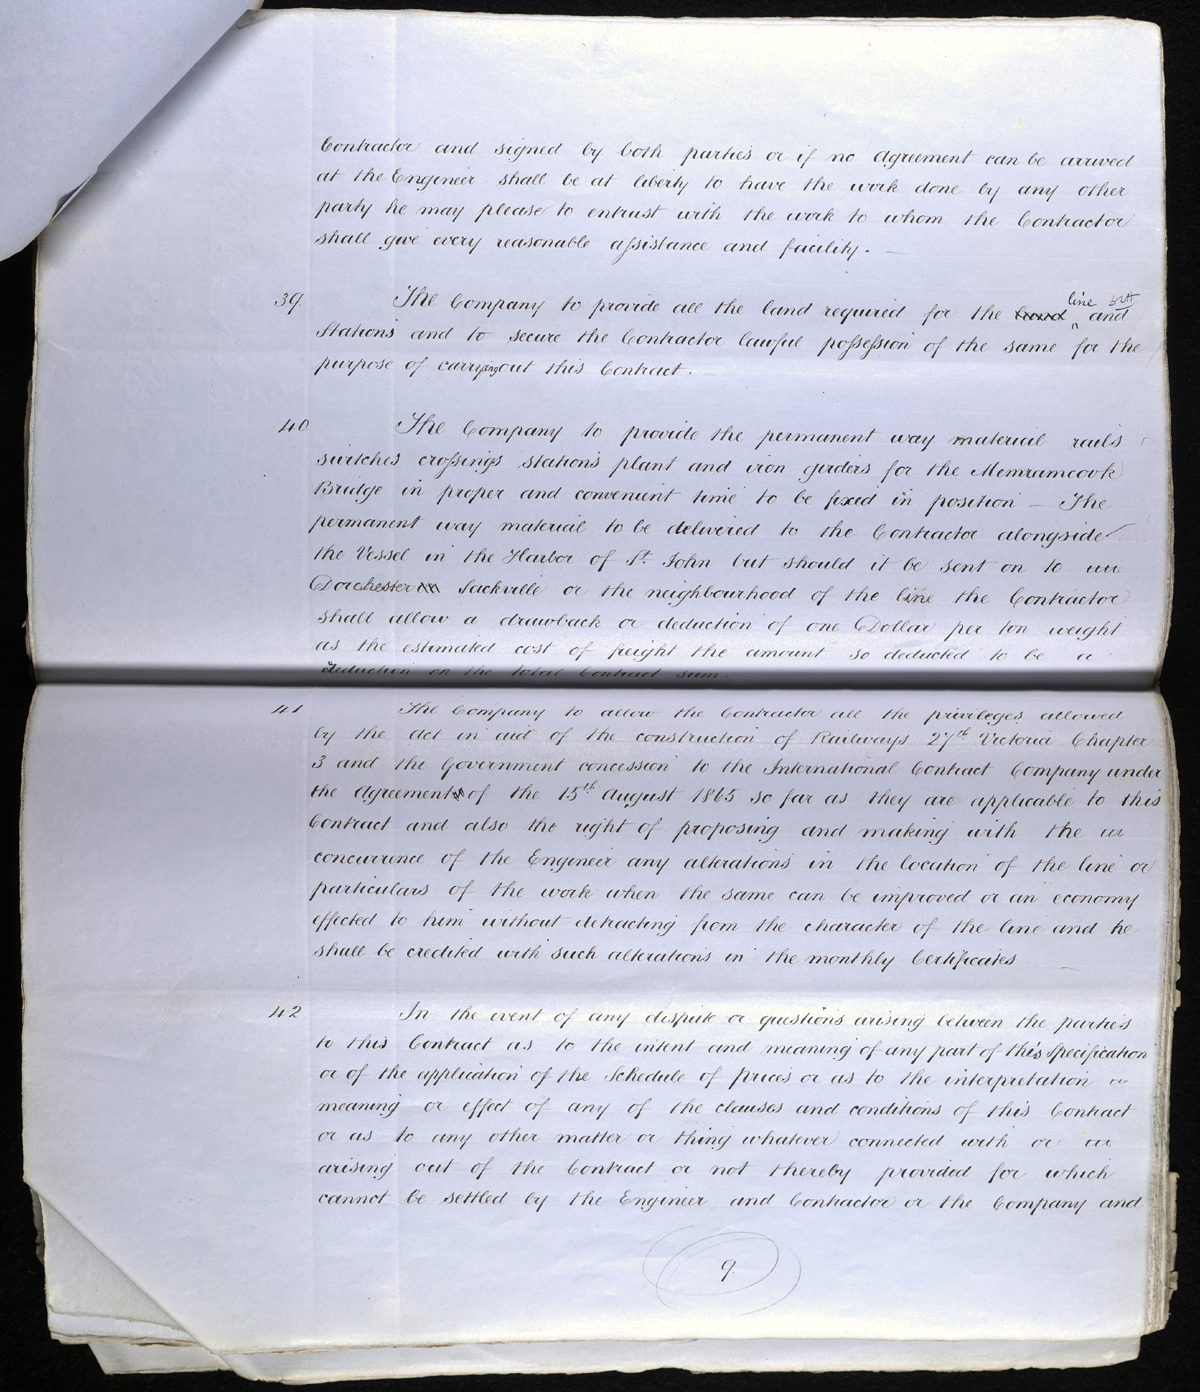 Contractor and signed by both parties or if no agreement can be arrived
at the Engineer shall be at liberty to have the work done by any other
party he may please to entrust with the work to whom the Contractor
shall give every reasonable assistance and facility. —
39. The Company to provide all the land required for the line and
Stations and to secure the Contractor lawful possession of the same for the
purpose of carrying out this Contract.
40 The Company to provide the permanent way material rails
switches crossings stations plant and iron girders for the Memramcook
Bridge in proper and convenient time to be fixed in position — The
permanent way material to be delivered to the Contractor alongside
the Vessel in the Harbor of St. John but should it be sent on to
Dorchester Sackville or the neighbourhood of the line the Contractor
shall allow a drawback or deduction of one Dollar per ton weight
as the estimated cost of freight the amount so deducted to be a
deduction on the total Contract sum.
41 The Company to allow the Contractor all the privileges allowed
by the act in aid of the construction of Railways 27th Victoria Chapter
3 and the Government concession to the International Contract Company under
the agreement of the 15th August 1865 so far as they are applicable to this
Contract and also the right of proposing and making with the
concurrence of the Engineer any alterations in the location of the line or
particulars of the work when the same can be improved or an economy
effected to him without detracting from the character of the line and he
shall be credited with such alterations in the monthly Certificates
42 In the event of any dispute or questions arising between the parties
to this Contract as to the intent and meaning of any part of this Specification
or of the application of the Schedule of prices or as to the interpretation
meaning or effect of any of the clauses and conditions of this Contract
or as to any other matter or thing whatever connected with or
arising out of the Contract or not thereby provided for which
cannot be settled by the Engineer and Contractor or the Company and
9.